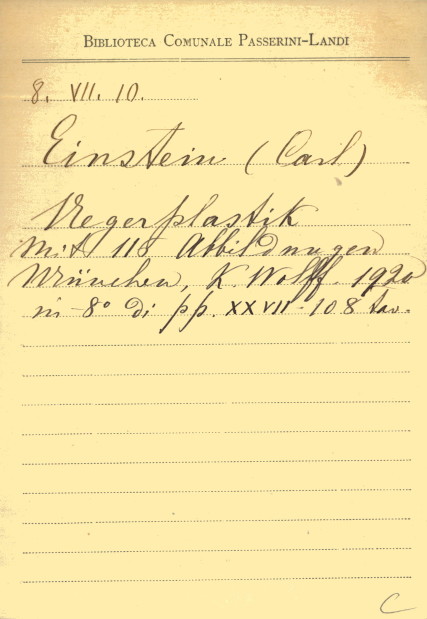 BIBLIOTECA COMUNALE PASSERINI-LANDI
8. VII. 10.
Einstein (Carl)
Negerplastik
Mit 116 Abbildungen
München, K. Wolff. 1920
in 8° di pp. XXVII-108 tav.
C